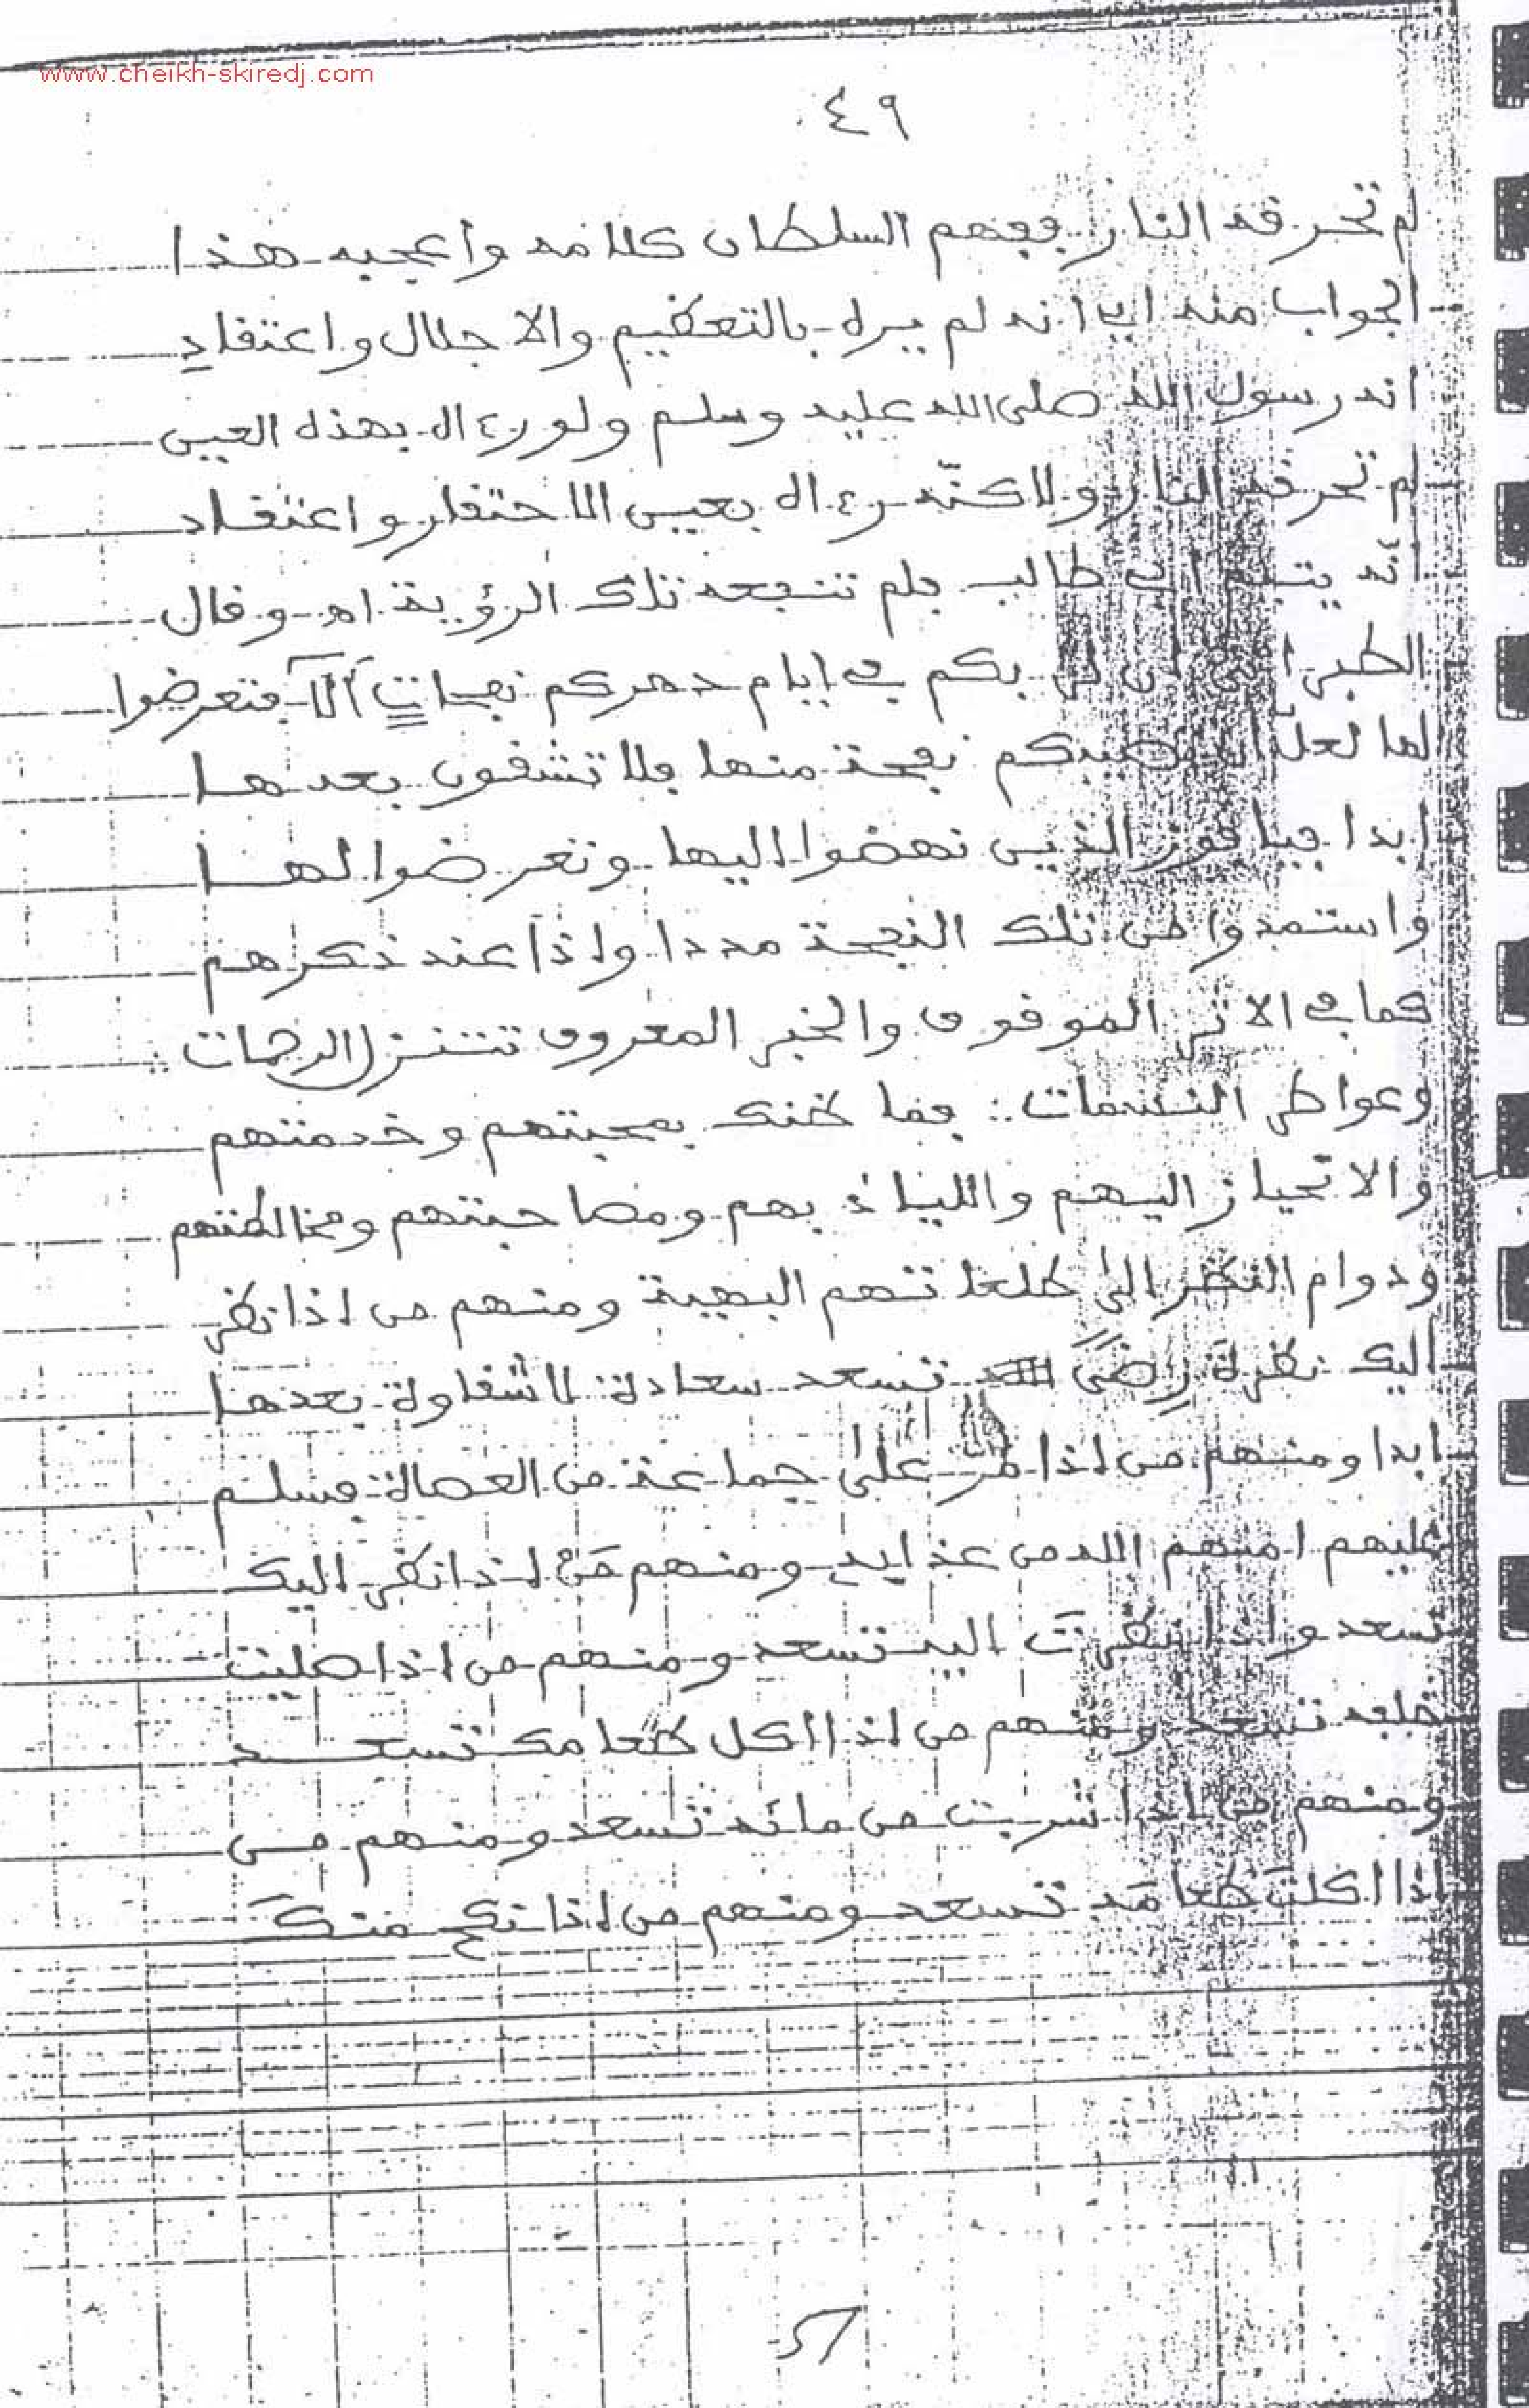 www.cheikh-skiredj.com
٤٩
لم تحرقه النار ففهم السلطان كلامه وأعجبه هذا
الجواب منه اي انه لم يره بالتعظيم والاجلال واعتقاد
انه رسول الله صلى الله عليه وسلم ولو رءاه بهذه العين
لم تحرقه النار ولاكنّه رءاه بعين الاحتقار واعتقاد
أنه يتيم ابي طالب فلم تنفعه تلك الرؤية اه وقال
الطبراني ان بكم في ايام دهركم نفحاتٍ ألآ فتعرضوا
لها لعل ان تصيبكم نفحة منها فلا تشقون بعدها
ابدا فيا فوز الذين نهضوا اليها وتعرضوا لها
واستمدوا من تلك النفحة مددا واذا عند ذكرهم
كما في الاثر الموقوف والخبر المعروف تتنزل الرحمات
وعواطر النسمات .: فما ظنك بمحبتهم وخدمتهم
والانحياز اليهم واللياذ بهم ومصاحبتهم ومخالطتهم
ودوام النظر الى طلعاتهم البهية ومنهم من اذا نظر
اليك نظرة رِضىً تسعد سعادة لا شقاوة بعدها
ابدا ومنهم من اذا مرّ على جماعة من العصاة فسلم
عليهم امنهم الله من عذابه ومنهم مَن اذا نظر اليك
تسعد واذا نظرتَ اليه تسعد ومنهم من اذا صليت
خلفه تسعد ومنهم من اذا اكل طعامك تسعد
ومنهم من اذا شربت من مائه تسعد ومنهم من
اذا اكلتَ طعامَه تسعد ومنهم من اذا نكح منكَ
51